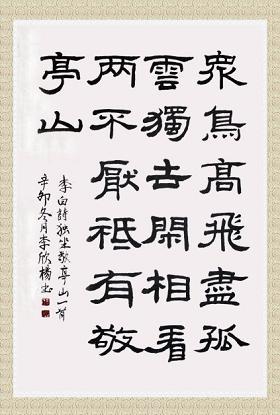 衆鳥髙飛盡孤
雲獨去閑相看
两不厭祗有敬
亭山
李白詩獨坐敬亭山一首
辛卯冬月李欣楊书